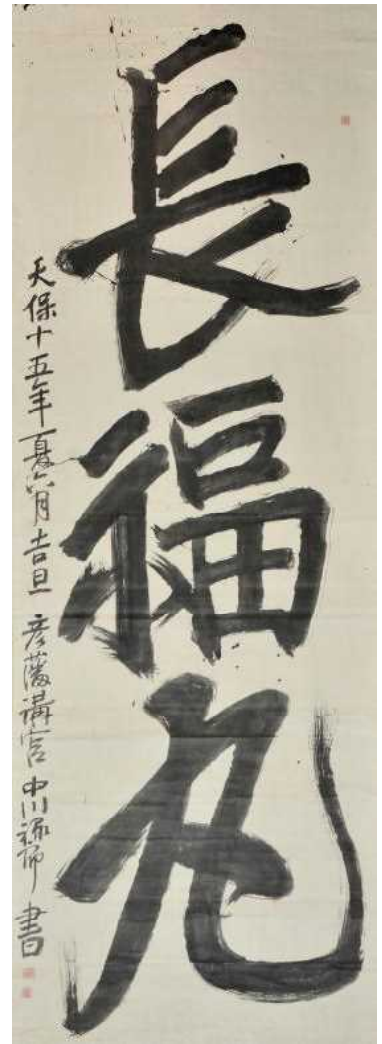 長福丸
天保十五年夏六月吉旦 彦藩講官 中川禄郎 書